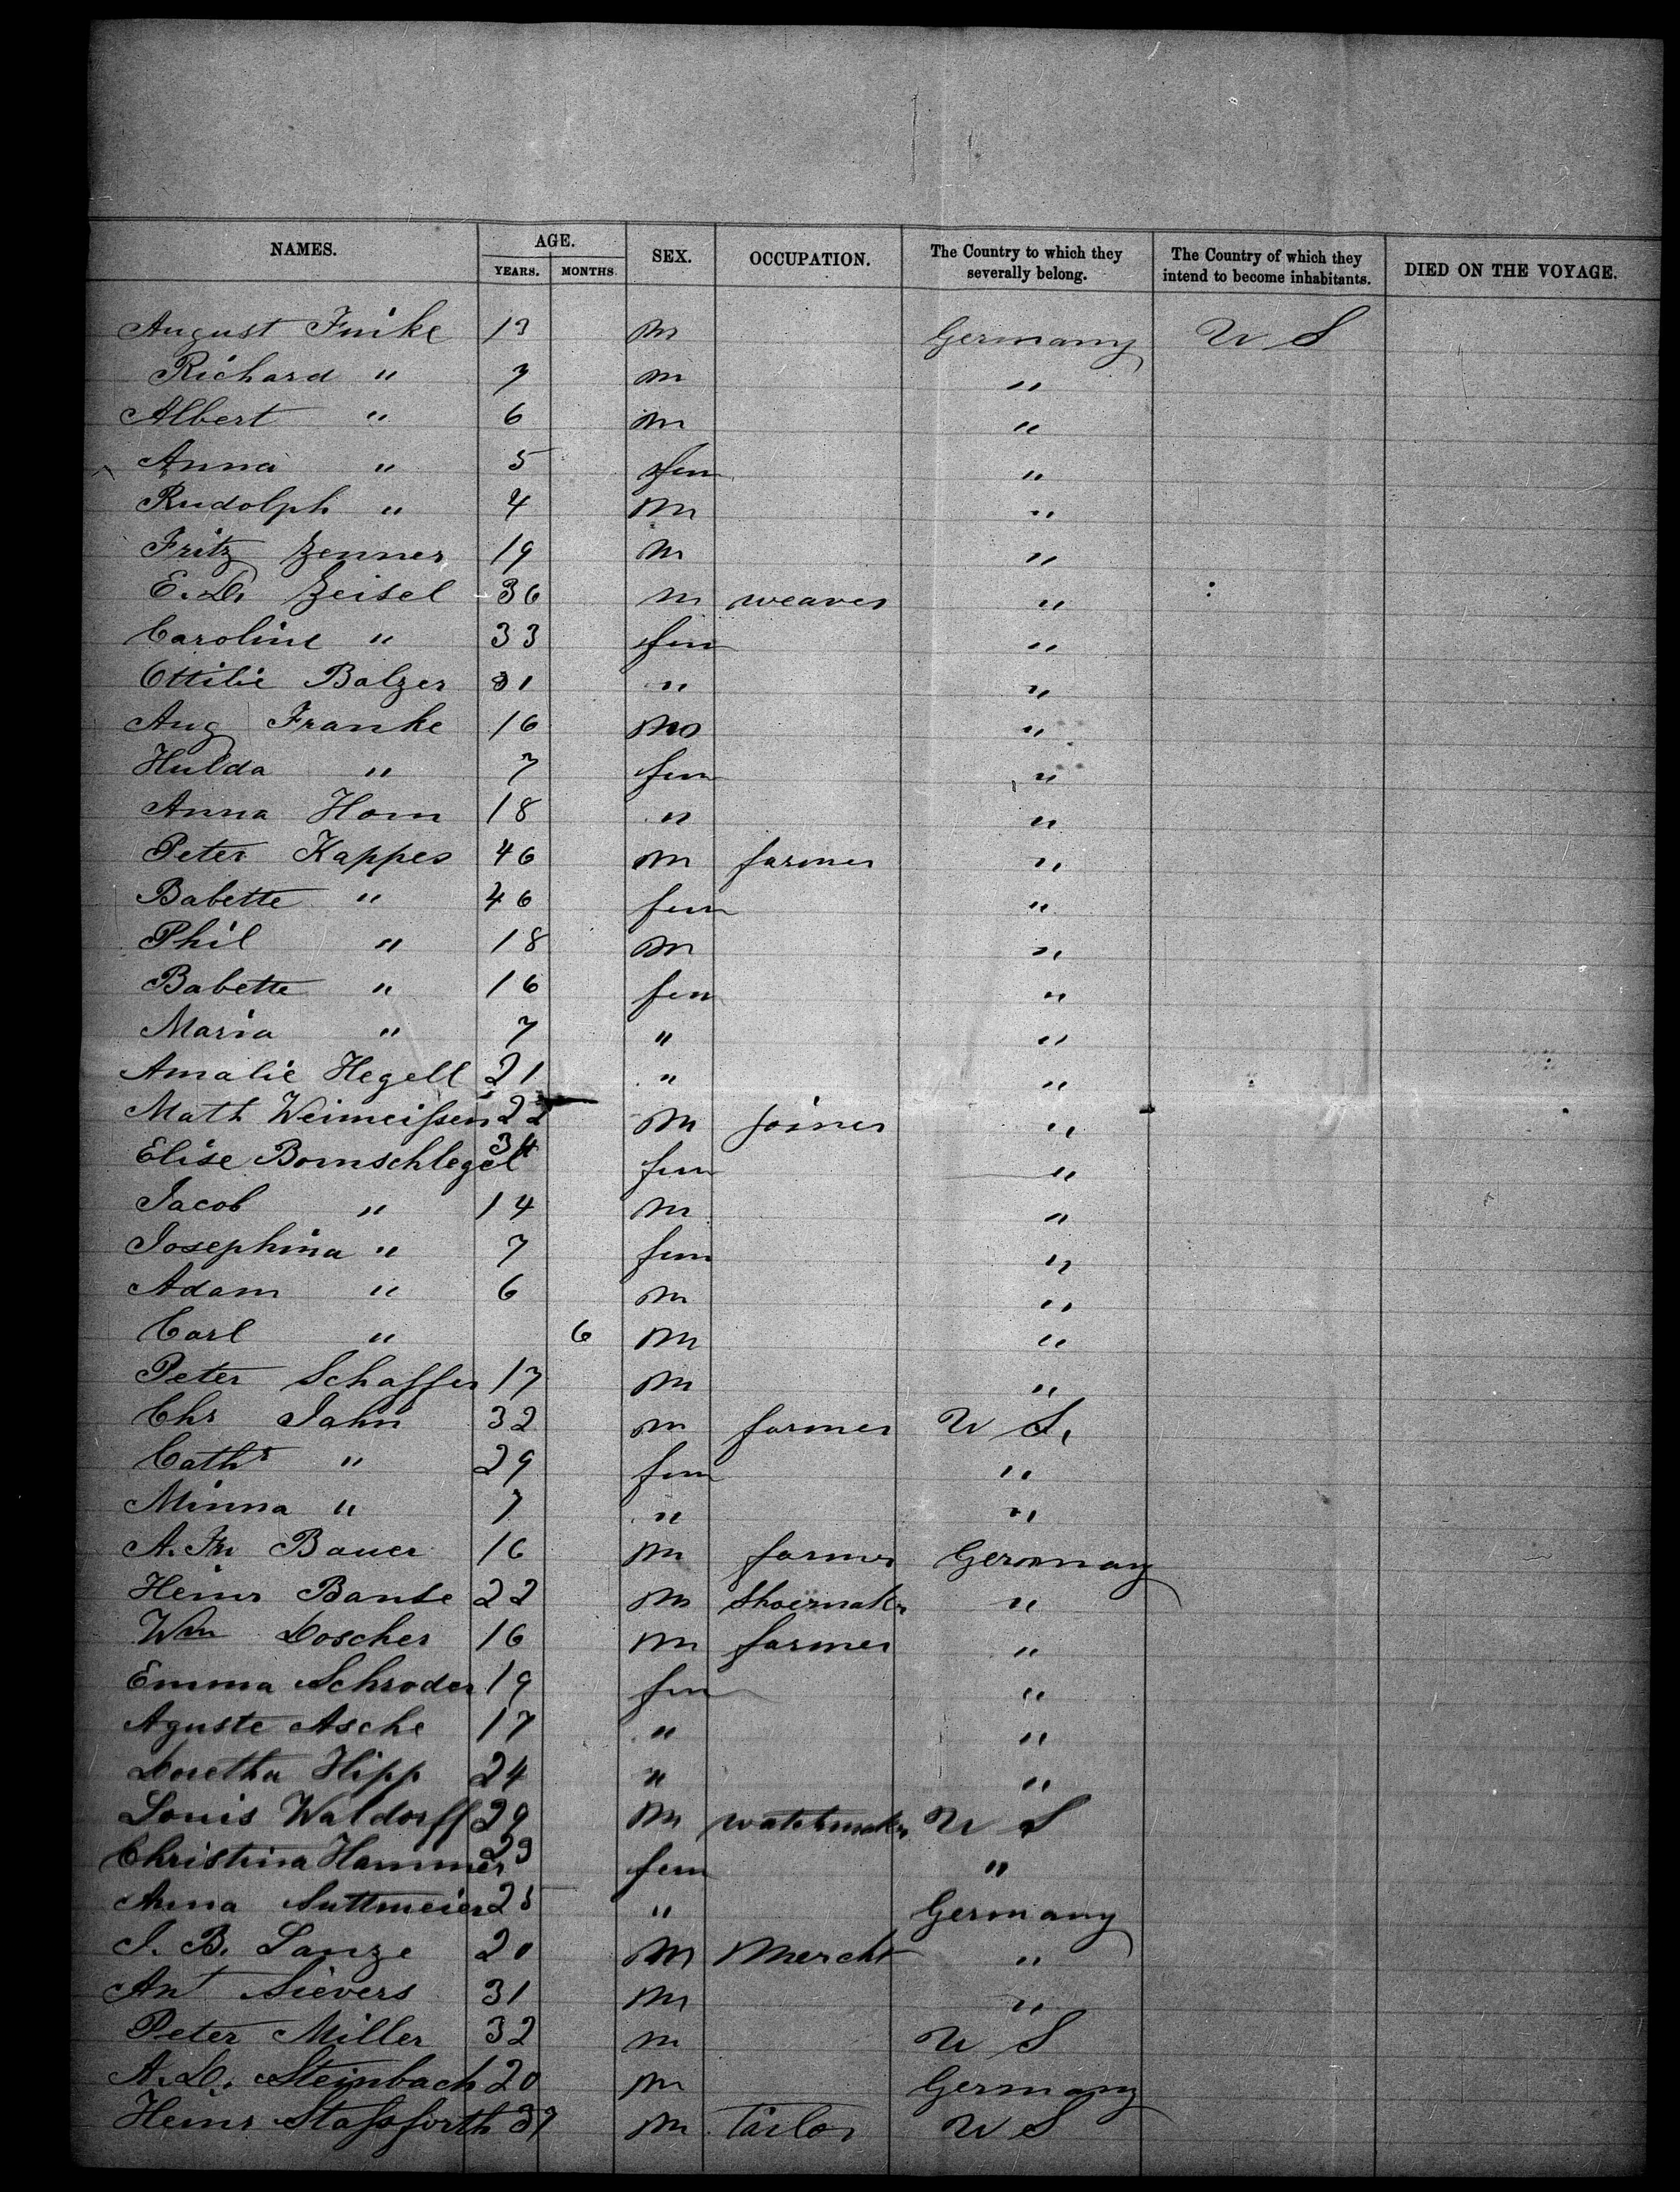 NAMES. AGE. SEX. OCCUPATION. The Country to which they severally belong. The Country of which they intend to become inhabitants. DIED ON THE VOYAGE.
YEARS. MONTHS.
August Finke 13 m Germany U S
Richard " 7 m "
Albert " 6 m "
Anna " 5 fem "
Rudolph " 4 m "
Fritz Zenner 19 m "
E. D. Zeisel 36 m weaver "
Caroline " 33 fem "
Ottilie Balzer 31 " "
Aug Franke 16 m "
Hulda " 7 fem "
Anna Horn 18 " "
Peter Kappes 46 m farmer "
Babette " 46 fem "
Phil " 18 m "
Babette " 16 fem "
Maria " 7 " "
Amalie Hegell 21 " "
Math Weimeissen 22 m joiner "
Elise Bornschlegel 34 fem "
Jacob " 14 m "
Josephina " 7 fem "
Adam " 6 m "
Carl " 6 m "
Peter Schaffer 17 m "
Chr Jahn 32 m farmer U S.
Cathr " 29 fem "
Minna " 7 " "
A. Fr. Bauer 16 m farmer Germany
Heinr Banse 22 m Shoemakr "
Wm Doscher 16 m farmer "
Emma Schroder 19 fem "
Aguste Asche 17 " "
Doretha Hipp 24 " "
Louis Waldorff 29 m watchmakr U S
Christina Hammer 23 fem "
Anna Suttmeier 25 " Germany
J. B. Lanze 20 m Mercht "
Ant Sievers 31 m "
Peter Miller 32 m U S
A. D. Steinbach 20 m Germany
Heinr Stassforth 37 m Tailor U S